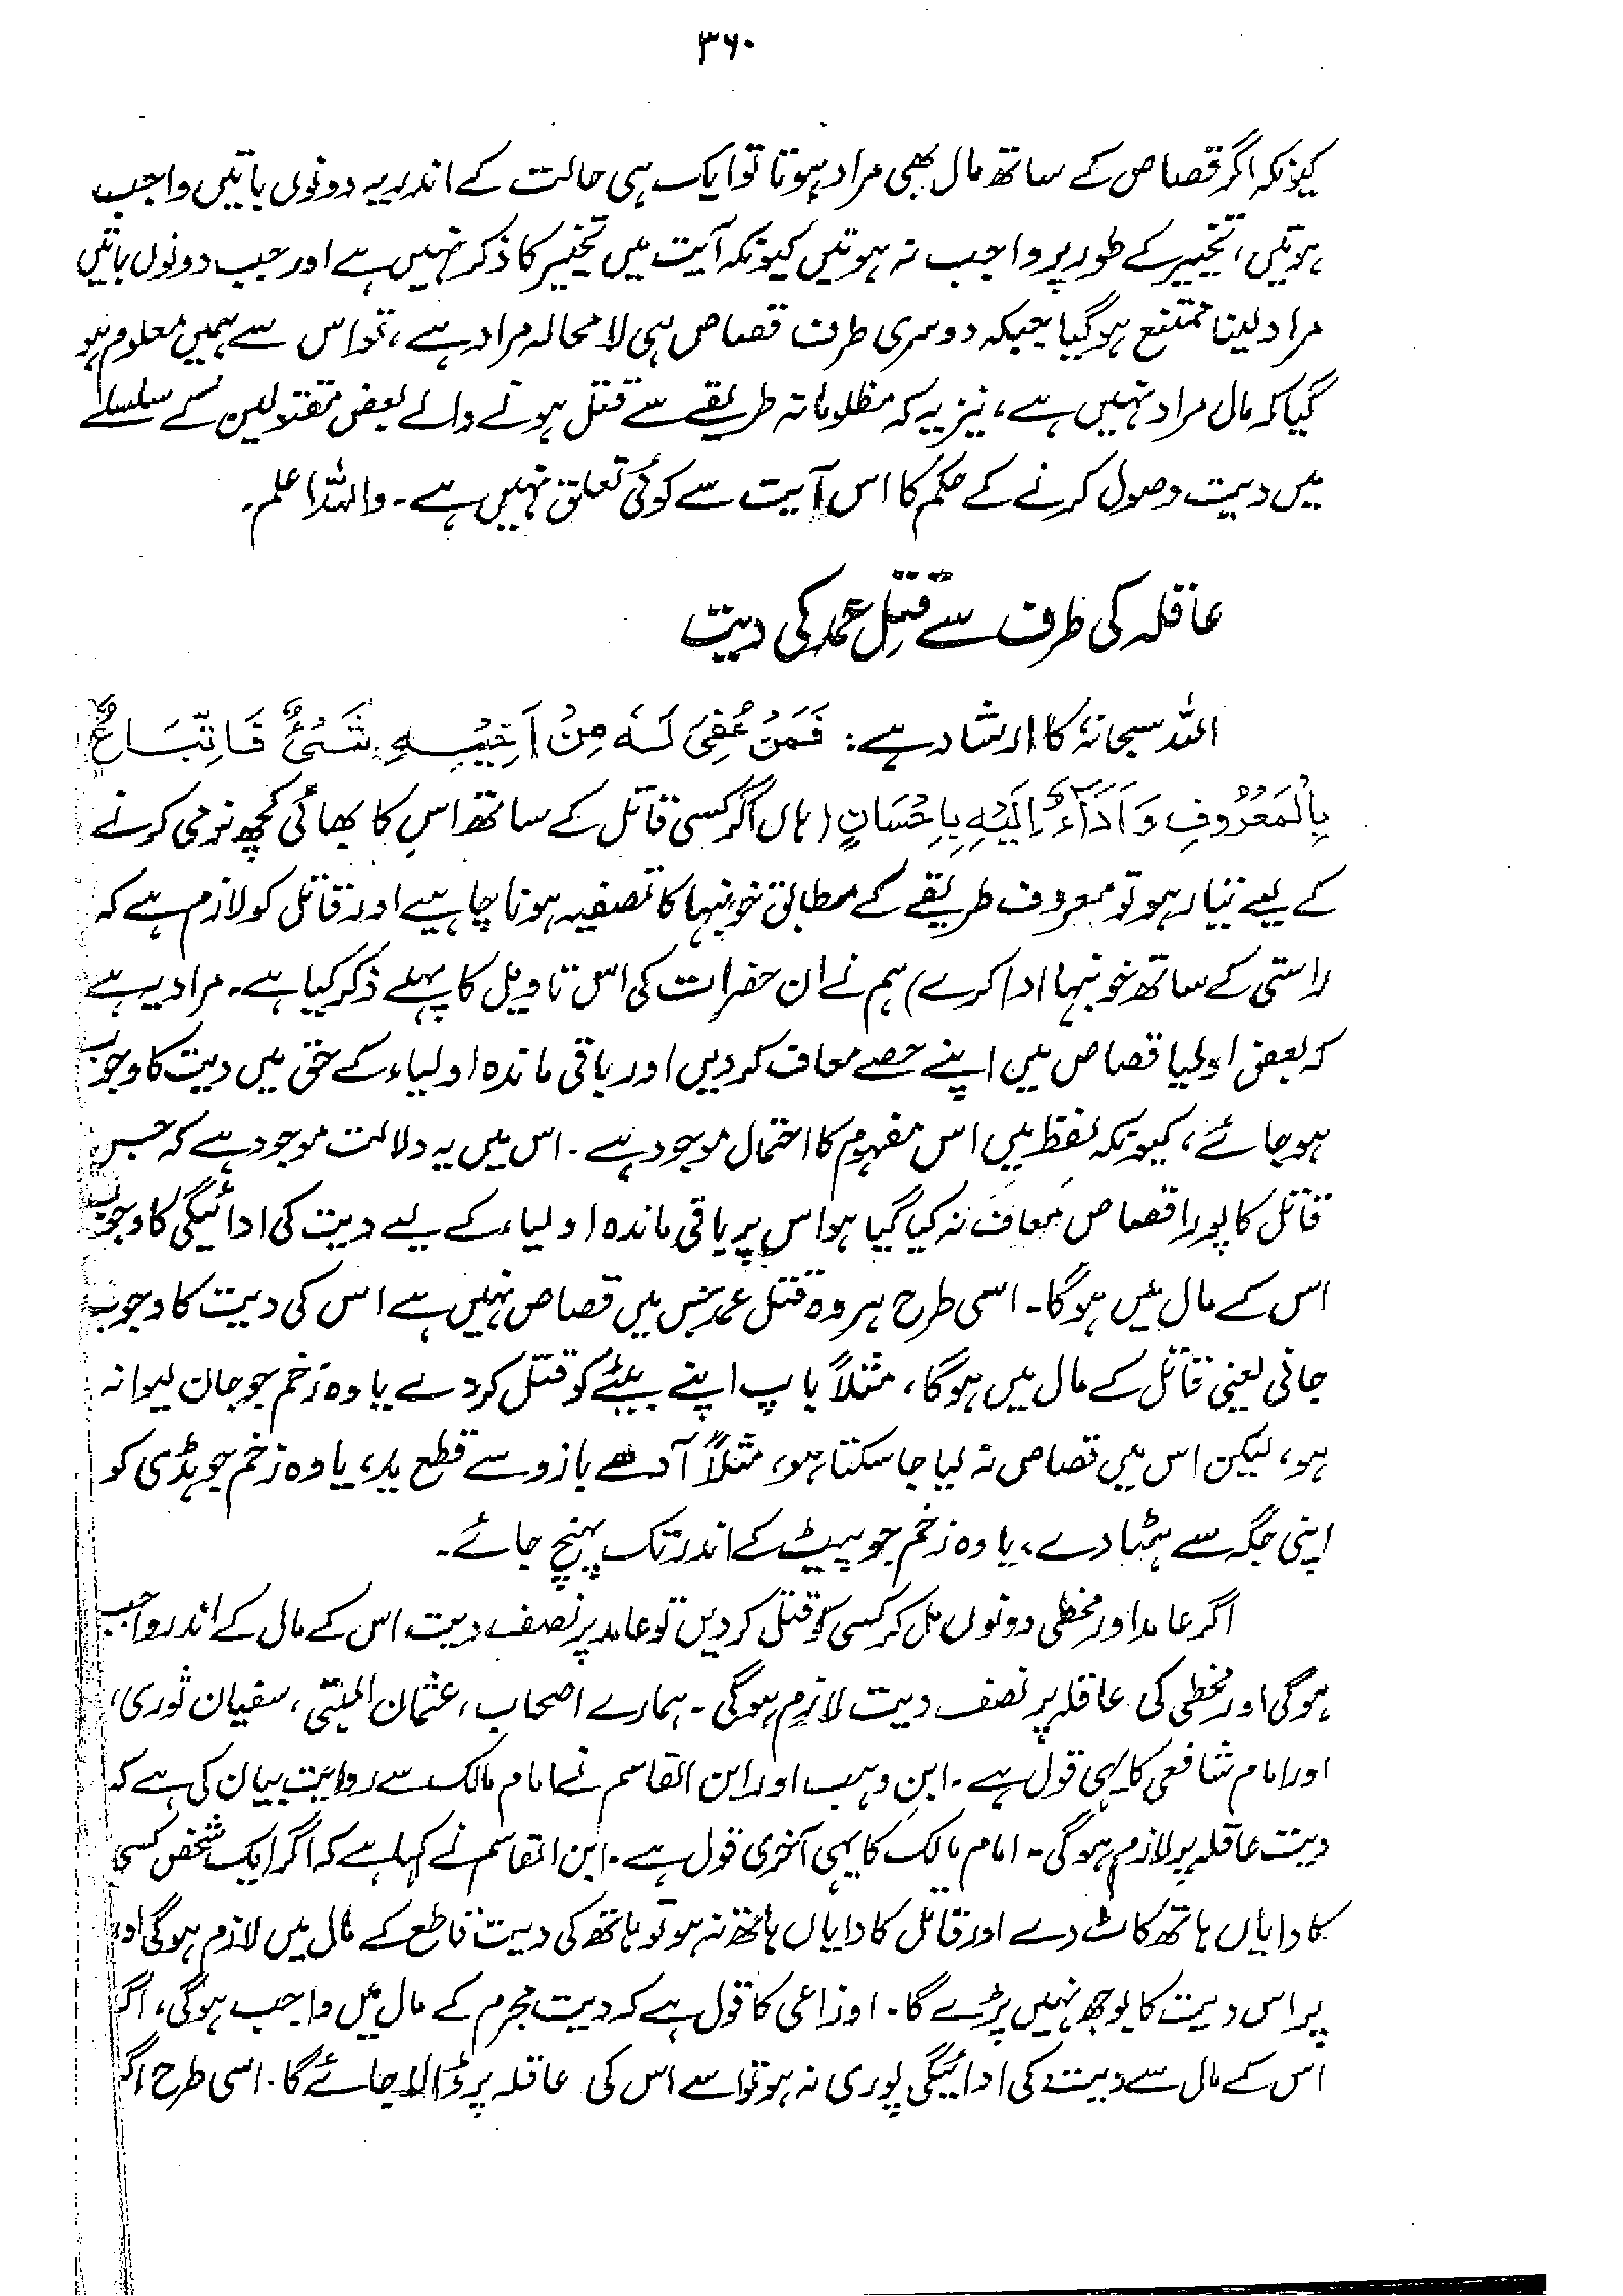 ۳۶۰
کیونکہ اگر قصاص کے ساتھ مال بھی مراد ہوتا تو ایک ہی حالت کے اندر یہ دونوں باتیں واجب
ہوتیں، تخییر کے طور پر واجب نہ ہوتیں کیونکہ آیت میں تخییر کا ذکر نہیں ہے اور جب دونوں باتیں
مراد لینا ممتنع ہو گیا جبکہ دوسری طرف قصاص ہی لا محالہ مراد ہے، تو اس سے ہمیں معلوم ہو
گیا کہ مال مراد نہیں ہے، نیز یہ کہ مظلومانہ طریقے سے قتل ہونے والے بعض مقتولین کے سلسلے
میں دیت وصول کرنے کے حکم کا اس آیت سے کوئی تعلق نہیں ہے۔ واللہ اعلم۔
عاقلہ کی طرف سے قتلِ عمد کی دیت
اللہ سبحانہٗ کا ارشاد ہے: فَمَنْ عُفِیَ لَہٗ مِنْ اَخِیْہِ شَیْءٌ فَاتِّبَاعٌ
بِالْمَعْرُوْفِ وَاَدَاءٌ اِلَیْہِ بِاِحْسَانٍ (ہاں اگر کسی قاتل کے ساتھ اس کا بھائی کچھ نرمی کرنے
کے لیے تیار ہو تو معروف طریقے کے مطابق خونبہا کا تصفیہ ہونا چاہیے اور قاتل کو لازم ہے کہ
راستی کے ساتھ خونبہا ادا کرے) ہم نے ان حضرات کی اس تاویل کا پہلے ذکر کیا ہے۔ مراد یہ ہے
کہ بعض اولیا قصاص میں اپنے حصے معاف کر دیں اور باقی ماندہ اولیاء کے حق میں دیت کا وجوب
ہو جائے، کیونکہ لفظ میں اس مفہوم کا احتمال موجود ہے۔ اس میں یہ دلالت موجود ہے کہ جس
قاتل کا پورا قصاص معاف نہ کیا گیا ہو اس پر باقی ماندہ اولیاء کے لیے دیت کی ادائیگی کا وجوب
اس کے مال میں ہوگا۔ اسی طرح ہر وہ قتل عمد جس میں قصاص نہیں ہے اس کی دیت کا وجوب
جانی یعنی قاتل کے مال میں ہوگا، مثلاً باپ اپنے بیٹے کو قتل کر دے یا وہ زخم جو جان لیوا نہ
ہو، لیکن اس میں قصاص نہ لیا جا سکتا ہو، مثلاً آدھے بازو سے قطع ید، یا وہ زخم جو ہڈی کو
اپنی جگہ سے ہٹا دے، یا وہ زخم جو پیٹ کے اندر تک پہنچ جائے۔
اگر عامد اور مخطی دونوں مل کر کسی کو قتل کر دیں تو عامد پر نصف دیت اس کے مال کے اندر واجب
ہوگی اور مخطی کی عاقلہ پر نصف دیت لازم ہوگی۔ ہمارے اصحاب، عثمان البتّی، سفیان ثوری،
اور امام شافعی کا یہی قول ہے۔ ابن وہب اور ابن القاسم نے امام مالک سے روایت بیان کی ہے کہ
دیت عاقلہ پر لازم ہوگی۔ امام مالک کا یہی آخری قول ہے۔ ابن القاسم نے کہا ہے کہ اگر ایک شخص کسی
کا دایاں ہاتھ کاٹ دے اور قاتل کا دایاں ہاتھ نہ ہو تو ہاتھ کی دیت قاطع کے مال میں لازم ہوگی اور
پر اس دیت کا بوجھ نہیں پڑے گا۔ اوزاعی کا قول ہے کہ دیت مجرم کے مال میں واجب ہوگی، اگر
اس کے مال سے دیت کی ادائیگی پوری نہ ہو تو اسے اس کی عاقلہ پر ڈالا جائے گا۔ اسی طرح اگر